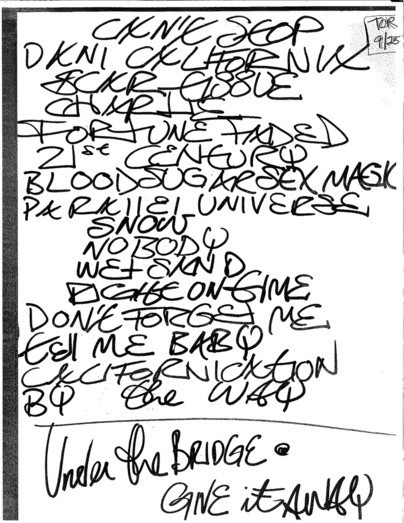 CAN'T STOP
TOR
9/25
DANI CALIFORNIA
SCAR TISSUE
CHARLIE
FORTUNE FADED
21st CENTURY
BLOODSUGARSEX MAGIK
PARALLEl UNIVERSE
SNOW
NOBODY
WEt SAND
RIGHT ON TIME
DON'T FORGET ME
tEll ME BABY
CALIFORNICATION
BY the WAY
Under the BRIDGE
GIVE it AWAY